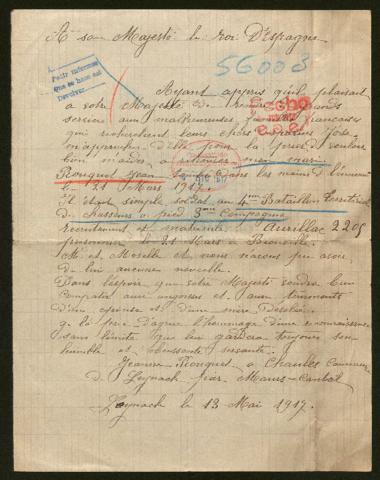 A son Majesté le roi D'Espagne
56003
Pedir informes
que se hace est
Devolver
Ayant appris qu'il plaisait
a votre Majesté de rendre grands
services aux malheureuses françaises
qui recherchent leurs chers
m'approcher d'elle pour la prier de vouloir
bien m'aider a retrouver mon mari
Rouquet Jean dans les mains l'ennemi
le 21 Mars 1917.
Il était simple soldat au 4eme Bataillon territorial
de chasseurs a pied 3eme Compagnie
recrutement et matricule Aurillac 2205
prisonnier le 21 Mars à
M. et Moselle et nous navons peu avoir
de lui aucunes nouvelle.
Dans l'espoir que votre Majesté voudra bien
compatir aux angoisses et aux tourments
d'une épouse et d'une mère Désolée
je la prie d'agréer l'hommage d'une reconnaissance
sans limite que lui gardera toujours son
humble et obeissante servante.
Jeanne Rouquet a Chaules Commune
de Leynach par Maurs-Cantal
Leynach le 13 Mai 1917.